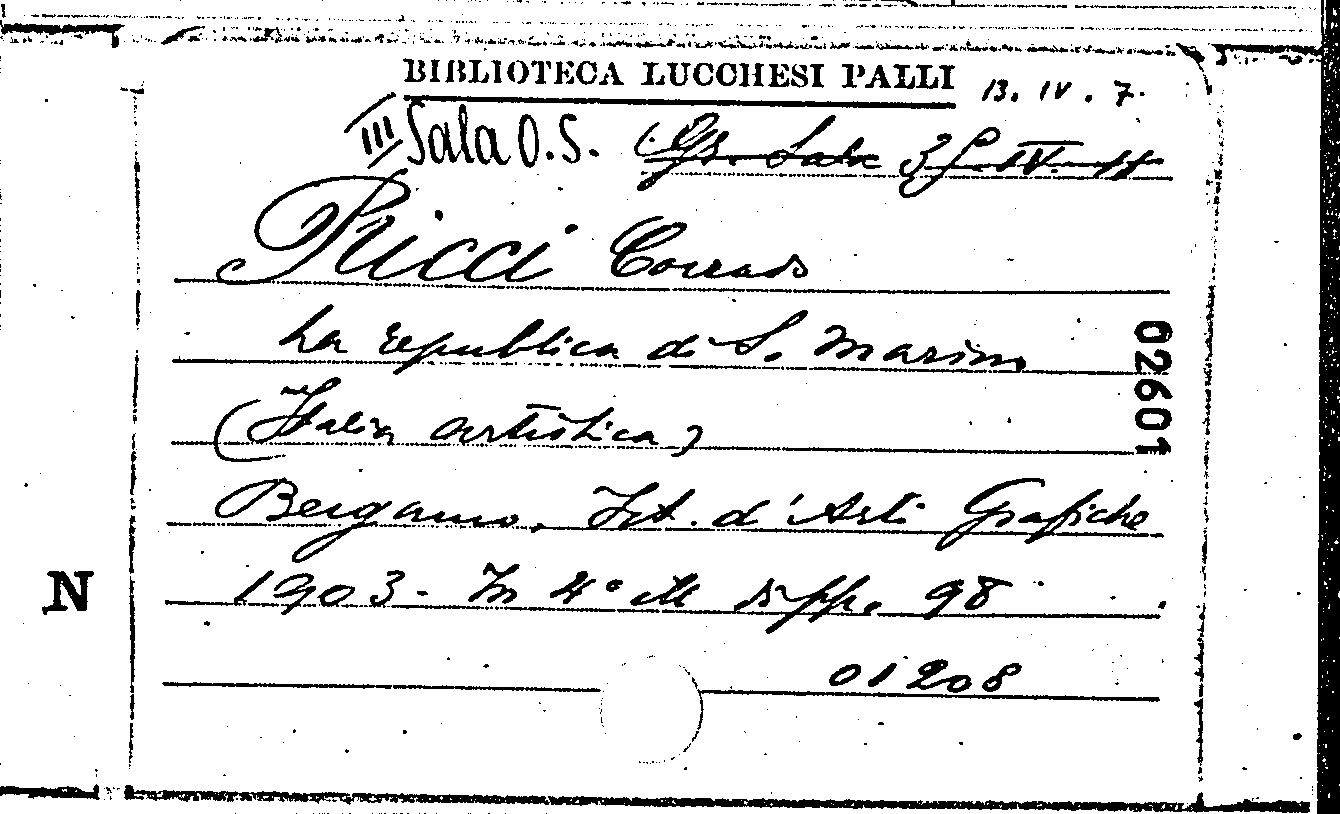 BIBLIOTECA LUCCHESI PALLI 13. IV. 7.
III Sala O.S. Gr. Sala
Ricci Corrado
La repubblica di S. Marino
(Italia artistica)
02601
Bergamo, Ist. d'Arti Grafiche
1903 - In 4° ill di pp. 98
N
01208